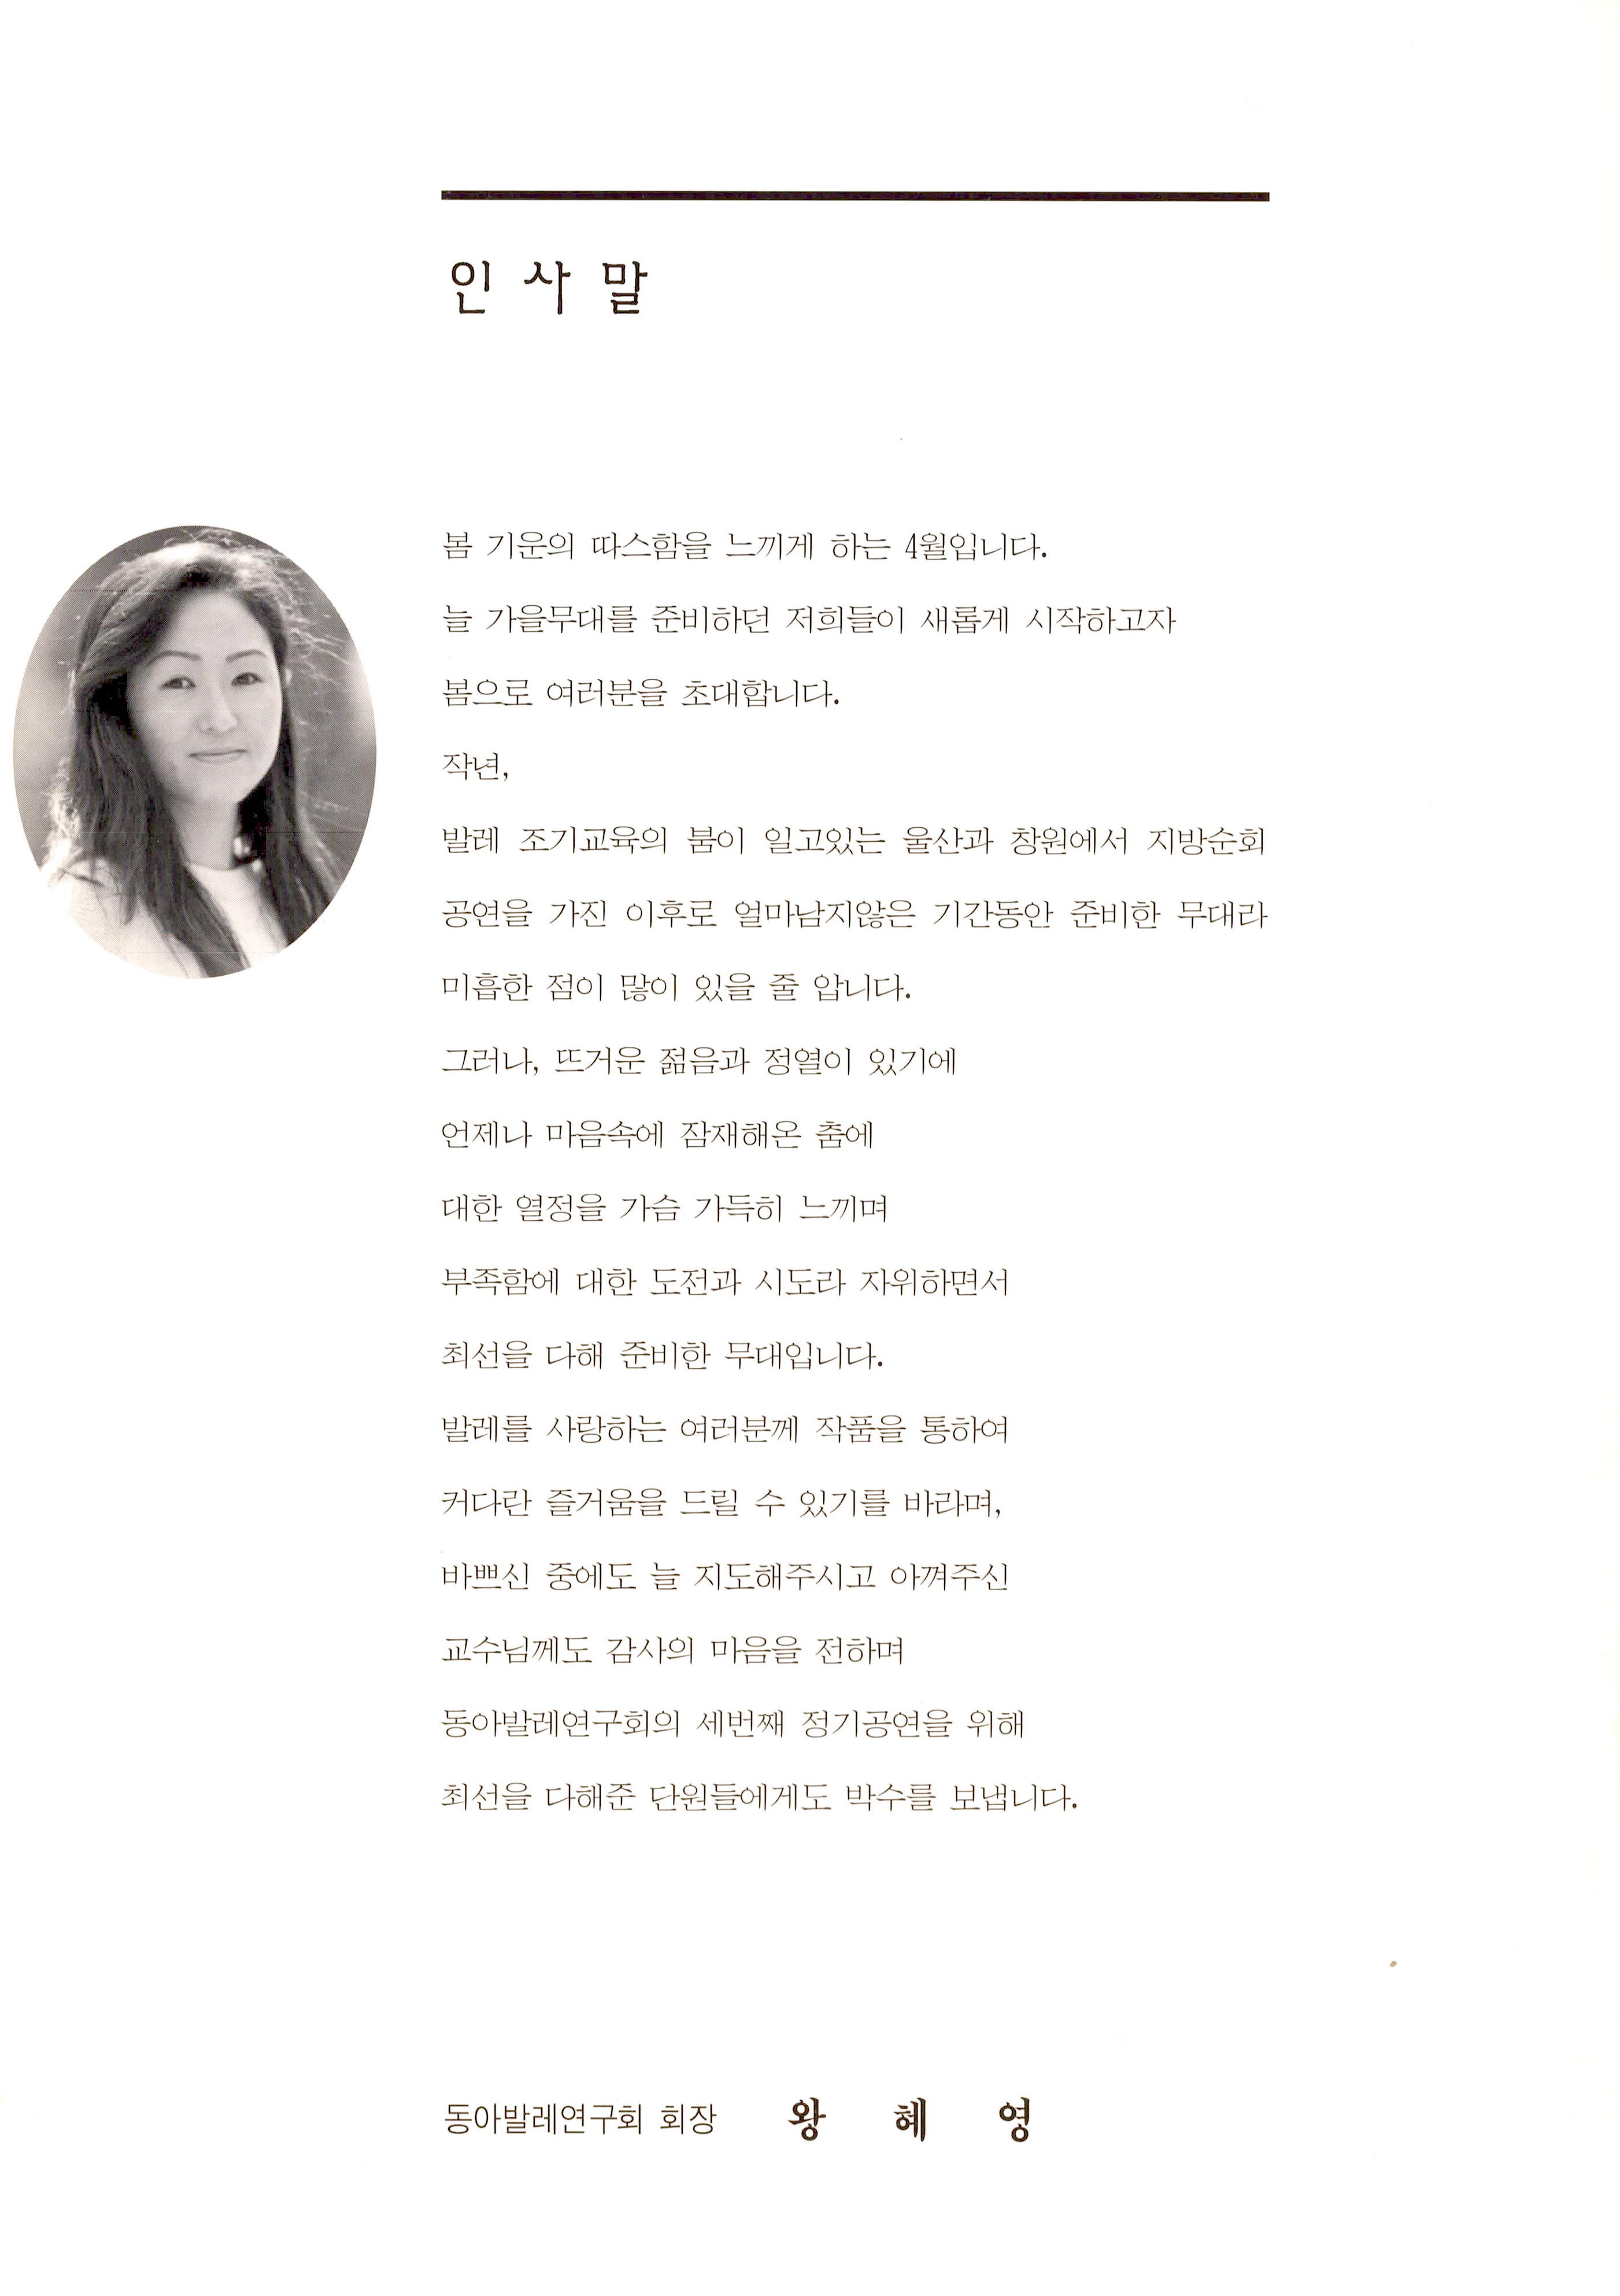 인 사 말
봄 기운의 따스함을 느끼게 하는 4월입니다.
늘 가을무대를 준비하던 저희들이 새롭게 시작하고자
봄으로 여러분을 초대합니다.
작년,
발레 조기교육의 붐이 일고있는 울산과 창원에서 지방순회
공연을 가진 이후로 얼마남지않은 기간동안 준비한 무대라
미흡한 점이 많이 있을 줄 압니다.
그러나, 뜨거운 젊음과 정열이 있기에
언제나 마음속에 잠재해온 춤에
대한 열정을 가슴 가득히 느끼며
부족함에 대한 도전과 시도라 자위하면서
최선을 다해 준비한 무대입니다.
발레를 사랑하는 여러분께 작품을 통하여
커다란 즐거움을 드릴 수 있기를 바라며,
바쁘신 중에도 늘 지도해주시고 아껴주신
교수님께도 감사의 마음을 전하며
동아발레연구회의 세번째 정기공연을 위해
최선을 다해준 단원들에게도 박수를 보냅니다.
동아발레연구회 회장 왕 혜 영